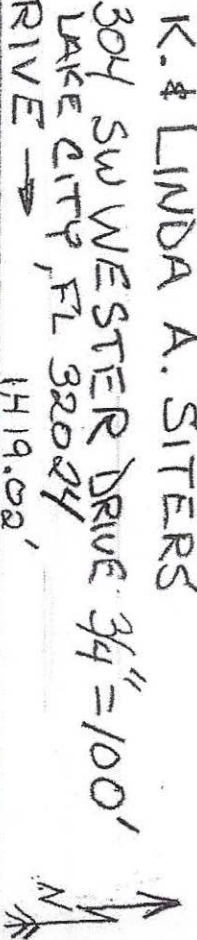 K. & LINDA A. SITERS
304 SW WESTER DRIVE 3/4" = 100'
LAKE CITY, FL 32024
RIVE → 1419.02'
N